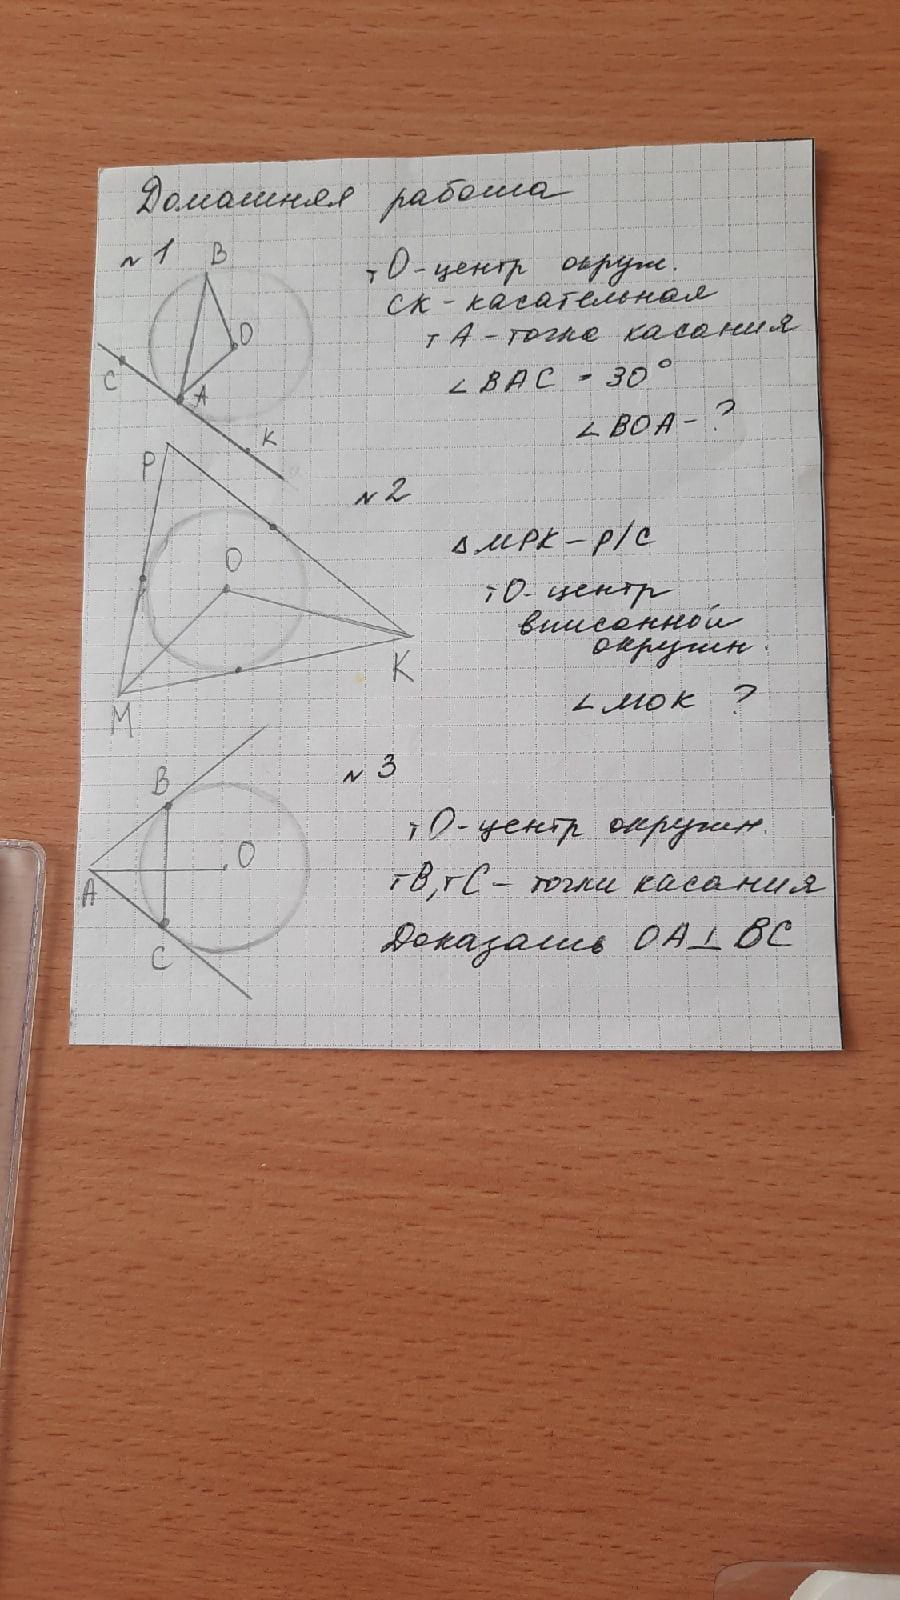 Домашняя работа
№1
B
O
C
A
K
т О-центр окруж.
CK-касательная
т А-точка касания
∠BAC = 30°
∠BOA-?
№2
P
O
M
K
△MPK-р/с
т О-центр
вписанной
окружн.
∠MOK ?
№3
B
O
A
C
т О-центр окружн.
тB, тC-точки касания
Доказать OA⊥BC